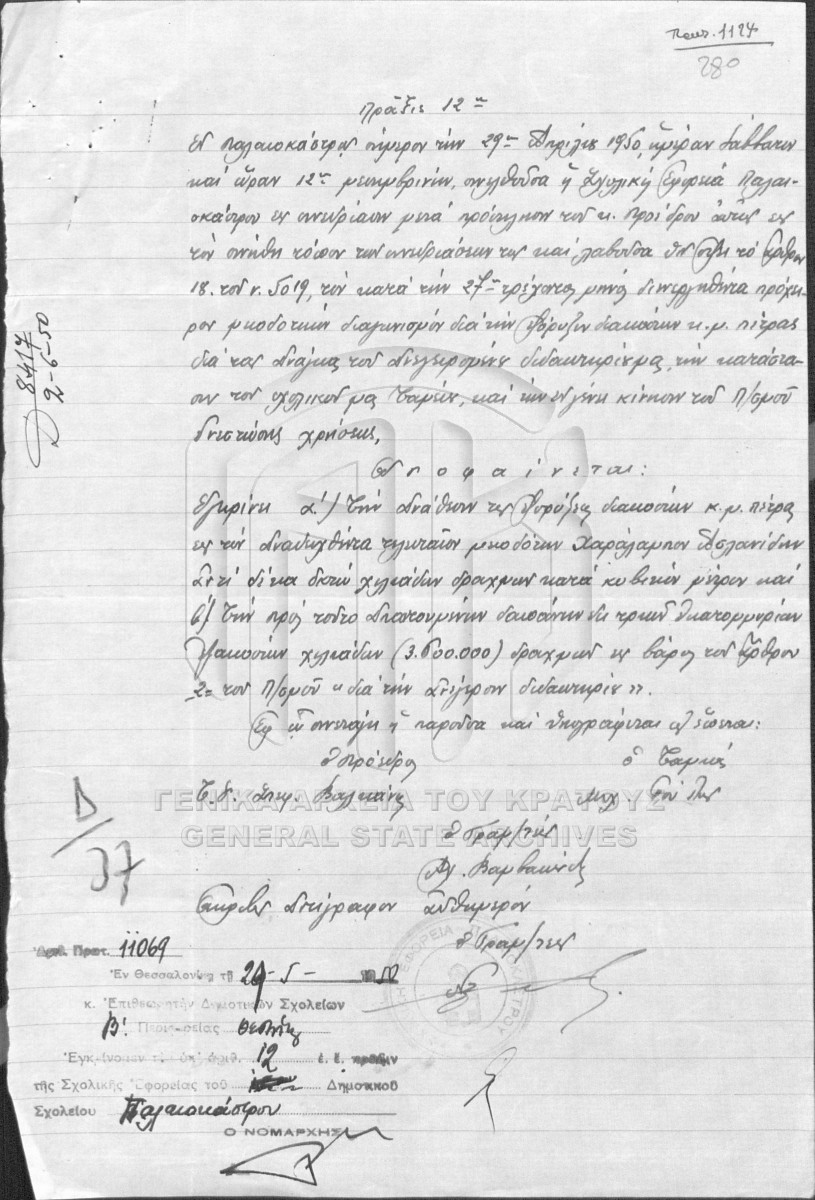 Πρωτ. 1124
280
Πρᾶξις 12η
Ἐν Παλαιοκάστρῳ σήμερον τὴν 29ην Ἀπριλίου 1950, ἡμέραν Σάββατον
καὶ ὥραν 12ην μεσημβρινήν, συνελθοῦσα ἡ Σχολικὴ Ἐφορεία Παλαι-
οκάστρου εἰς συνεδρίασιν μετὰ πρόσκλησιν τοῦ κ. Προέδρου αὐτῆς εἰς
τὸν συνήθη τόπον τῶν συνεδριάσεών της καὶ λαβοῦσα ὑπ' ὄψει τὸ ἄρθρον
18 τοῦ ν. 5019, τὸν κατὰ τὴν 27ην τρέχοντος μηνὸς διενεργηθέντα πρόχει-
ρον μειοδοτικὸν διαγωνισμὸν διὰ τὴν ἐξόρυξιν διακοσίων κ.μ. πέτρας
διὰ τὰς ἀνάγκας τοῦ ἀνεγειρομένου διδακτηρίου μας, τὴν κατάστα-
σιν τοῦ σχολικοῦ μας Ταμείου, καὶ τὴν ἐν γένει κίνησιν τοῦ Π/σμοῦ
ἐνεστώσης χρήσεως,
Ἀ π ο φ α ί ν ε τ α ι :
Ἐγκρίνει α') Τὴν ἀνάθεσιν τῆς ἐξορύξεως διακοσίων κ.μ. πέτρας
εἰς τὸν ἀναδειχθέντα τελευταῖον μειοδότην Χαράλαμπον Ἀσλανίδην
ἀντὶ δέκα ὀκτὼ χιλιάδων δραχμῶν κατὰ κυβικὸν μέτρον καὶ
β') Τὴν πρὸς τοῦτο ἀπαιτουμένην δαπάνην ἐκ τριῶν ἑκατομμυρίων
ἑξακοσίων χιλιάδων (3.600.000) δραχμῶν εἰς βάρος τοῦ ἄρθρου
2ου τοῦ Π/σμοῦ « διὰ τὴν ἀνέγερσιν διδακτηρίου ».
Ἐφ' ᾧ συνετάγη ἡ παροῦσα καὶ ὑπογράφεται ὡς ἕπεται:
Ὁ Πρόεδρος
Ὁ Ταμίας
Τ.Υ. Σπυρ. Βαλκάνης
Μιχ.
Ὁ Γραμ/τεὺς
Ἀκριβὲς ἀντίγραφον αὐθημερόν
Ὁ Γραμ/τεὺς
8417
2-6-50
Δ/37
ΓΕΝΙΚΑ ΑΡΧΕΙΑ ΤΟΥ ΚΡΑΤΟΥΣ
GENERAL STATE ARCHIVES
Ἀριθ. Πρωτ. 11069
Ἐν Θεσσαλονίκῃ τῇ 29-5- 1950
κ. Ἐπιθεωρητὴν Δημοτικῶν Σχολείων
Β! Περιφερείας Θεσ/νίκης
Ἐγκρίνομεν τὴν ὑπ' ἀριθ. 12 ἐ. ἔ. πρᾶξιν
τῆς Σχολικῆς Ἐφορείας τοῦ Δημοτικοῦ
Σχολείου Παλαιοκάστρου
Ο ΝΟΜΑΡΧΗΣ